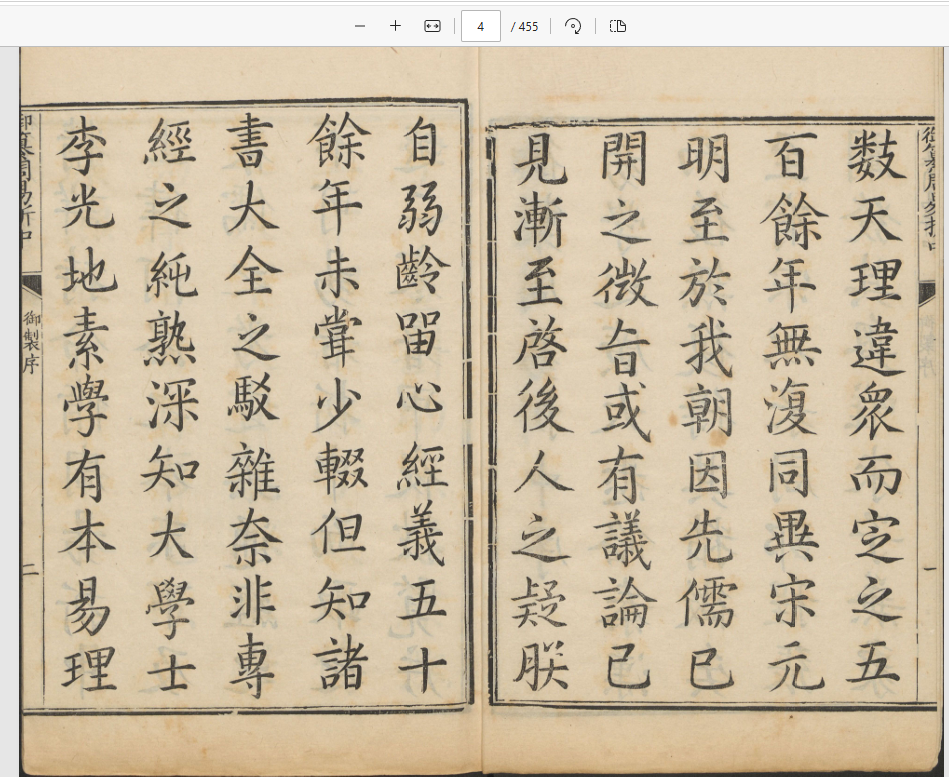 4 / 455
御纂周易折中
一
數天理違衆而定之五
百餘年無復同異宋元
明至於我朝因先儒已
開之微旨或有議論已
見漸至啓後人之疑朕
自弱齡留心經義五十
餘年未嘗少輟但知諸
書大全之駁雜奈非專
經之純熟深知大學士
李光地素學有本易理
御纂周易折中
御製序
二